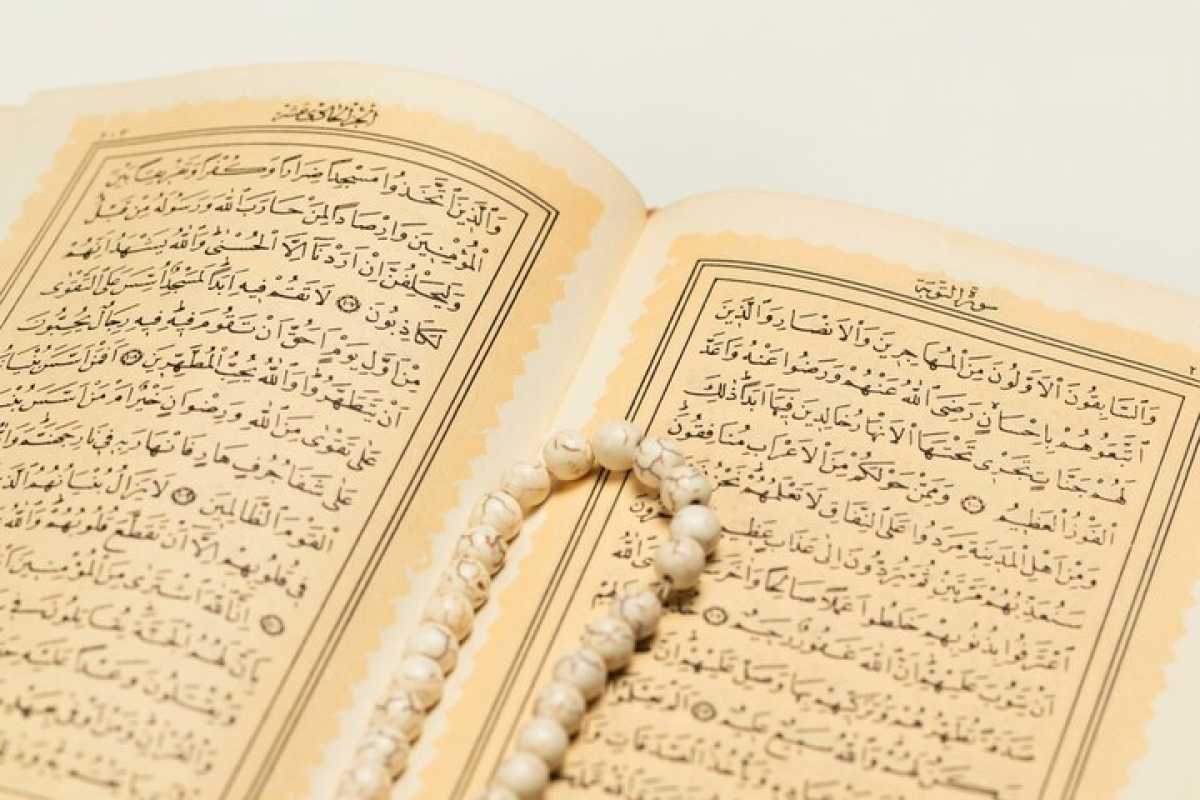 سورة التوبة
وَالسَّابِقُونَ الْاَوَّلُونَ مِنَ الْمُهَاجِرِينَ وَالْاَنْصَارِ وَالَّذِينَ
اتَّبَعُوهُمْ بِاِحْسَانٍ رَضِيَ اللهُ عَنْهُمْ وَرَضُوا عَنْهُ وَاَعَدَّ
لَهُمْ جَنَّاتٍ تَجْرِي تَحْتَهَا الْاَنْهَارُ خَالِدِينَ فِيهَا اَبَدًا ذٰلِكَ
الْفَوْزُ الْعَظِيمُ وَمِمَّنْ حَوْلَكُمْ مِنَ الْاَعْرَابِ مُنَافِقُونَ
وَمِنْ اَهْلِ الْمَدِينَةِ مَرَدُوا عَلَى النِّفَاقِ لَا تَعْلَمُهُمْ نَحْنُ
سَنُعَذِّبُهُمْ مَرَّتَيْنِ ثُمَّ يُرَدُّونَ اِلٰى عَذَابٍ عَظِيمٍ
اعْتَرَفُوا بِذُنُوبِهِمْ خَلَطُوا عَمَلًا صَالِحًا وَاٰخَرَ اللهُ
اَنْ يَتُوبَ عَلَيْهِمْ اِنَّ اللهَ غَفُورٌ رَحِيمٌ
صَدَقَةً تُطَهِّرُهُمْ وَتُزَكِّيهِمْ بِهَا وَصَلِّ عَلَيْهِمْ اِنَّ
سَكَنٌ لَهُمْ وَاللهُ سَمِيعٌ عَلِيمٌ اَلَمْ يَعْلَمُوا
وَيَأْخُذُ الصَّدَقَاتِ
الجزء الحادى عشر
وَالَّذِينَ اتَّخَذُوا مَسْجِدًا ضِرَارًا وَكُفْرًا وَتَفْرِيقًا بَيْنَ
الْمُؤْمِنِينَ وَاِرْصَادًا لِمَنْ حَارَبَ اللهَ وَرَسُولَهُ مِنْ قَبْلُ
وَلَيَحْلِفُنَّ اِنْ اَرَدْنَا اِلَّا الْحُسْنٰى وَاللهُ يَشْهَدُ اِنَّهُمْ
لَكَاذِبُونَ لَا تَقُمْ فِيهِ اَبَدًا لَمَسْجِدٌ اُسِّسَ عَلَى التَّقْوٰى
مِنْ اَوَّلِ يَوْمٍ اَحَقُّ اَنْ تَقُومَ فِيهِ فِيهِ رِجَالٌ يُحِبُّونَ
اَنْ يَتَطَهَّرُوا وَاللهُ يُحِبُّ الْمُطَّهِّرِينَ اَفَمَنْ اَسَّسَ بُنْيَانَهُ
عَلٰى تَقْوٰى مِنَ اللهِ وَرِضْوَانٍ خَيْرٌ اَمْ مَنْ اَسَّسَ
عَلٰى شَفَا جُرُفٍ هَارٍ فَانْهَارَ بِهِ فِي نَارِ جَهَنَّمَ
الْقَوْمَ الظَّالِمِينَ لَا يَزَالُ بُنْيَانُهُمُ الَّذِي
فِي قُلُوبِهِمْ اِلَّا اَنْ تَقَطَّعَ قُلُوبُهُمْ وَاللهُ
اِنَّ اللهَ اشْتَرٰى مِنَ الْمُؤْمِنِينَ
بِاَنَّ لَهُمُ الْجَنَّةَ يُقَاتِلُونَ فِي
وَيُقْتَلُونَ وَعْدًا عَلَيْهِ
وَالْقُرْاٰنِ وَمَنْ اَوْفٰى بِعَهْدِهِ